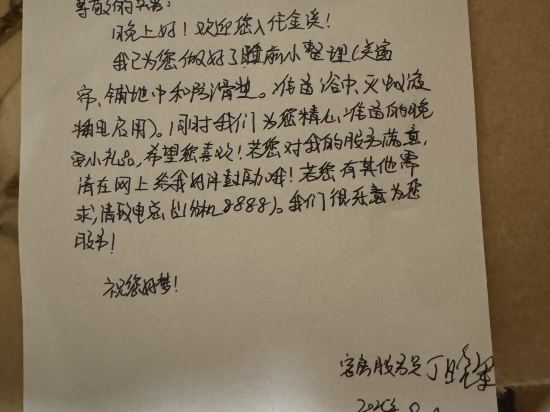 尊敬的贵宾:
晚上好!欢迎您入住金溪!
我已为您做好了睡前小整理(关窗
帘、铺地巾和防滑垫。准备浴巾、灭蚊液
插电启用)。同时我们为您精心准备的晚
安小礼品,希望您喜欢!若您对我的服务满意,
请在网上给我好评鼓励哦!若您有其他需
求,请致电总台(分机8888)。我们很乐意为您
服务!
祝您好梦!
客房服务员 丁